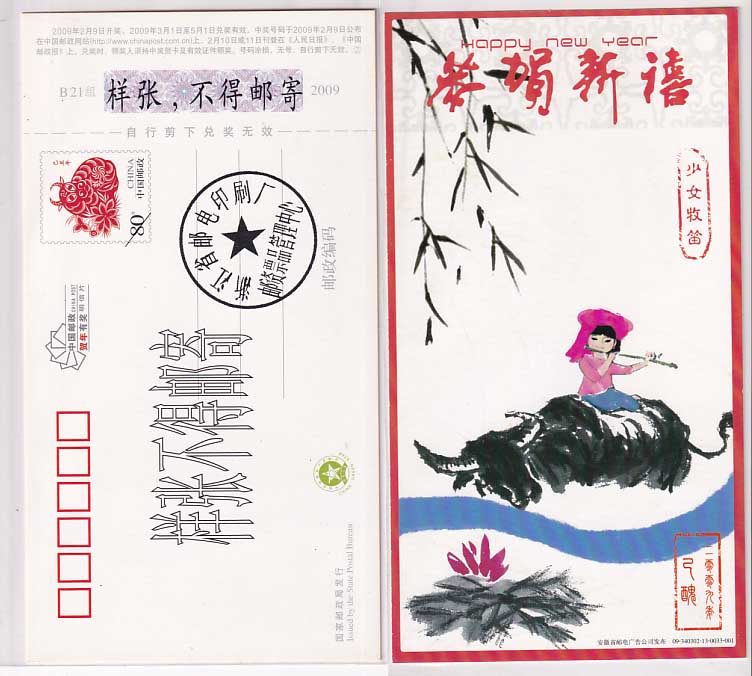 2009年2月9日开奖。2009年3月1日至5月1日兑奖有效。中奖号码于2009年2月9日公布
在中国邮政网站(http://www.chinapost.com.cn)上,2月10日或11日刊登在《人民日报》、《中国
邮政报》上。兑奖时,领奖人须持中奖贺卡及有效证件领奖。号码涂损,无号,自行剪下无效。②
B 21组 样张,不得邮寄 2009
自行剪下兑奖无效
己丑年
CHINA
中国邮政
80
浙江省邮电印刷厂
邮资票品管理中心
邮政编码
中国邮政 CHINA POST
贺年有奖明信片
样张不得邮寄
国家邮政局发行
Issued by the State Postal Bureau
Happy New Year
恭贺新禧
少女牧笛
二零零九年
己醜
安徽省邮电广告公司发布 09-340302-13-0033-001